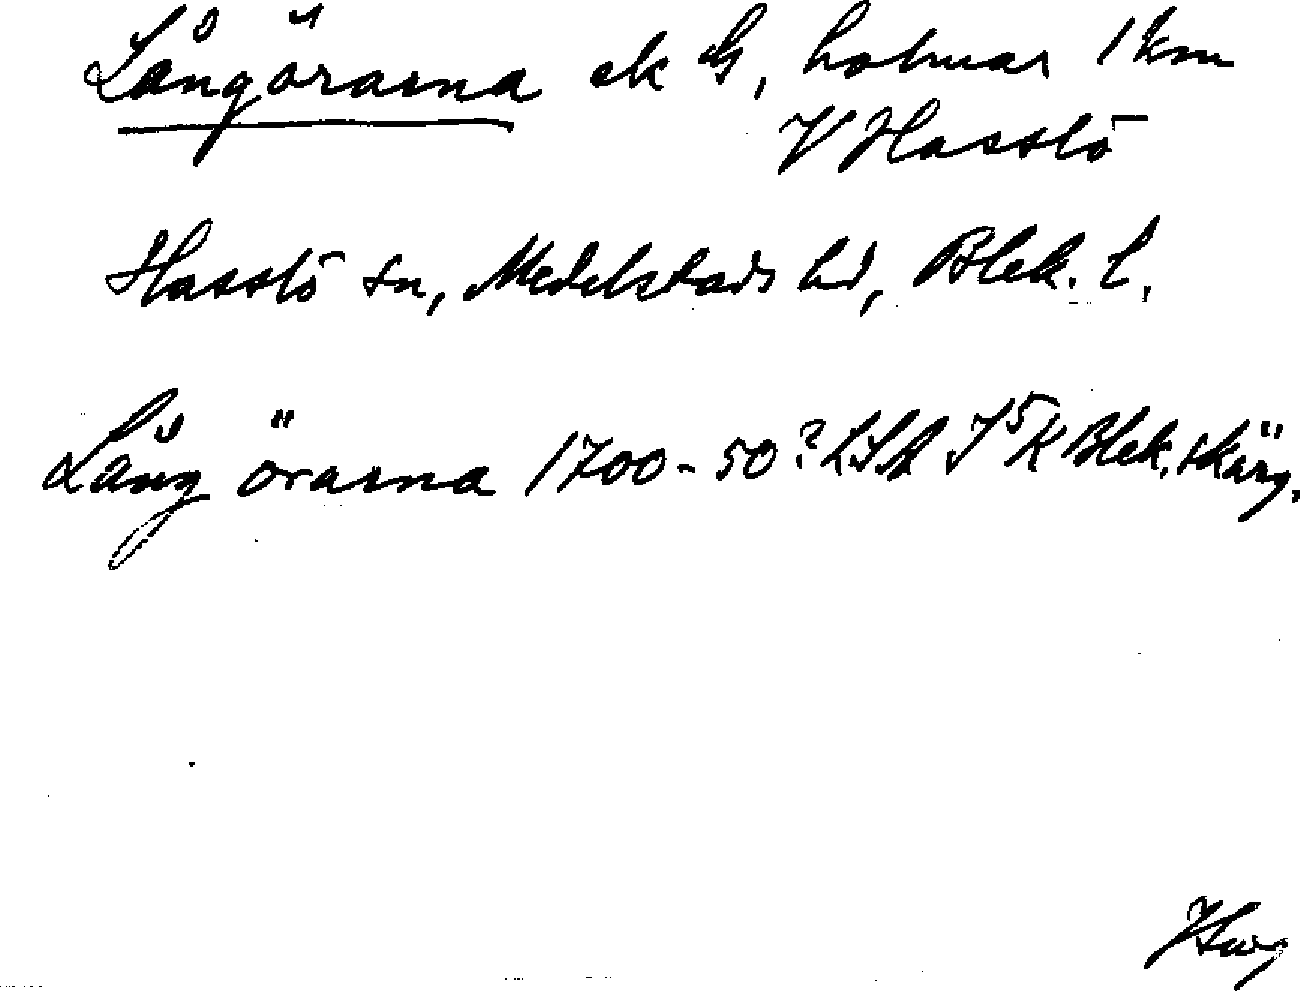 Långörarna ek G, holmar 1 km
V Hasslö
Hasslö sn, Medelstads hd, Blek. l.
Lång örarna 1700-50? K Blek. skärg.